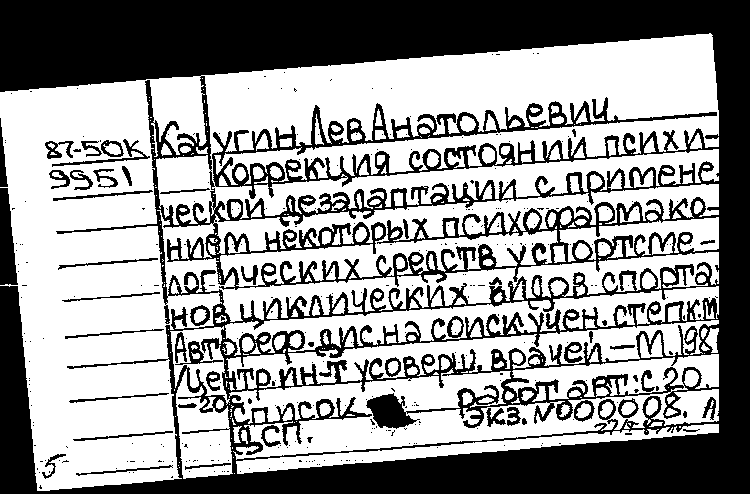 Качугин, Лев Анатольевич.
87-50К
9951
Коррекция состояний психи-
ческой дезадаптации с примене-
нием некоторых психофармако-
логических средств у спортсме-
нов циклических видов спорта:
Автореф. дис. на соиск. учен. степ. к.м.
/Центр. ин-т усоверш. врачей. — М., 198
-20с
Список работ авт.: с. 20.
ДСП. Экз. N000008.
5